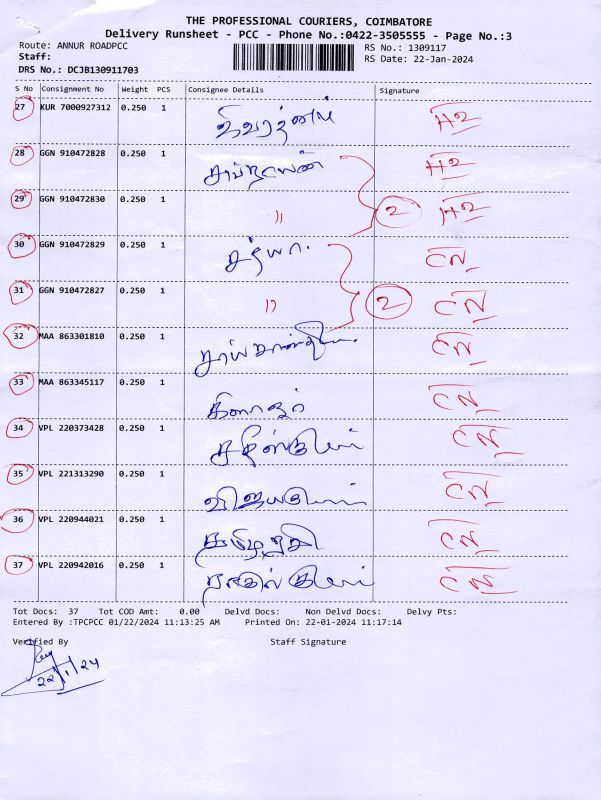 THE PROFESSIONAL COURIERS, COIMBATORE
Delivery Runsheet - PCC - Phone No.:0422-3505555 - Page No.:3
Route: ANNUR ROADPCC RS No.: 1309117
Staff: RS Date: 22-Jan-2024
DRS No.: DCJB130911703
S No Consignment No Weight PCS Consignee Details Signature
27 KUR 7000927312 0.250 1 H2
28 GGN 910472828 0.250 1 H2
29 GGN 910472830 0.250 1 " 2 H2
30 GGN 910472829 0.250 1 சத்யா. CN
31 GGN 910472827 0.250 1 " 2 CN
32 MAA 863301810 0.250 1 CN
33 MAA 863345117 0.250 1 CN
34 VPL 220373428 0.250 1 CN
35 VPL 221313290 0.250 1 CN
36 VPL 220944021 0.250 1 CN
37 VPL 220942016 0.250 1 CN
Tot Docs: 37 Tot COD Amt: 0.00 Delvd Docs: Non Delvd Docs: Delvy Pts:
Entered By :TPCPCC 01/22/2024 11:13:25 AM Printed On: 22-01-2024 11:17:14
Verified By Staff Signature
22/1/24